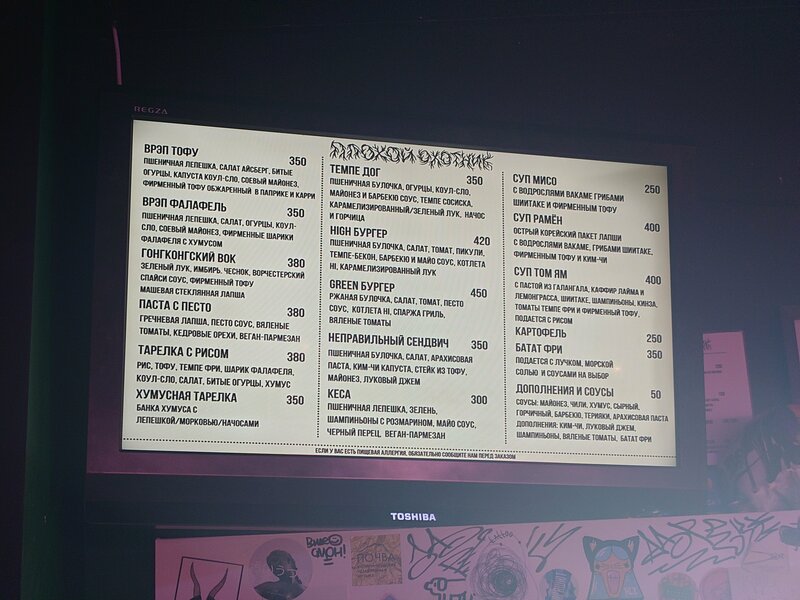 REGZA
ВРЭП ТОФУ 350
ПШЕНИЧНАЯ ЛЕПЕШКА, САЛАТ АЙСБЕРГ, БИТЫЕ
ОГУРЦЫ, КАПУСТА КОУЛ-СЛО, СОЕВЫЙ МАЙОНЕЗ,
ФИРМЕННЫЙ ТОФУ ОБЖАРЕННЫЙ В ПАПРИКЕ И КАРРИ
ВРЭП ФАЛАФЕЛЬ 350
ПШЕНИЧНАЯ ЛЕПЕШКА, САЛАТ, ОГУРЦЫ, КОУЛ-
СЛО, СОЕВЫЙ МАЙОНЕЗ, ФИРМЕННЫЕ ШАРИКИ
ФАЛАФЕЛЯ С ХУМУСОМ
ГОНГКОНГСКИЙ ВОК 380
ЗЕЛЕНЫЙ ЛУК, ИМБИРЬ, ЧЕСНОК, ВОРЧЕСТЕРСКИЙ
СПАЙСИ СОУС, ФИРМЕННЫЙ ТОФУ
МАШЕВАЯ СТЕКЛЯННАЯ ЛАПША
ПАСТА С ПЕСТО 380
ГРЕЧНЕВАЯ ЛАПША, ПЕСТО СОУС, ВЯЛЕНЫЕ
ТОМАТЫ, КЕДРОВЫЕ ОРЕХИ, ВЕГАН-ПАРМЕЗАН
ТАРЕЛКА С РИСОМ 380
РИС, ТОФУ, ТЕМПЕ ФРИ, ШАРИК ФАЛАФЕЛЯ,
КОУЛ-СЛО, САЛАТ, БИТЫЕ ОГУРЦЫ, ХУМУС
ХУМУСНАЯ ТАРЕЛКА 350
БАНКА ХУМУСА С
ЛЕПЕШКОЙ/МОРКОВЬЮ/НАЧОСАМИ
ПЛОХОЙ ОХОТНИК
ТЕМПЕ ДОГ 350
ПШЕНИЧНАЯ БУЛОЧКА, ОГУРЦЫ, КОУЛ-СЛО,
МАЙОНЕЗ И БАРБЕКЮ СОУС, ТЕМПЕ СОСИСКА,
КАРАМЕЛИЗИРОВАННЫЙ/ЗЕЛЕНЫЙ ЛУК, НАЧОС
И ГОРЧИЦА
HIGH БУРГЕР 420
ПШЕНИЧНАЯ БУЛОЧКА, САЛАТ, ТОМАТ, ПИКУЛИ,
ТЕМПЕ-БЕКОН, БАРБЕКЮ И МАЙО СОУС, КОТЛЕТА
HI, КАРАМЕЛИЗИРОВАННЫЙ ЛУК
GREEN БУРГЕР 450
РЖАНАЯ БУЛОЧКА, САЛАТ, ТОМАТ, ПЕСТО
СОУС, КОТЛЕТА HI, СПАРЖА ГРИЛЬ,
ВЯЛЕНЫЕ ТОМАТЫ
НЕПРАВИЛЬНЫЙ СЕНДВИЧ 350
ПШЕНИЧНАЯ БУЛОЧКА, САЛАТ, АРАХИСОВАЯ
ПАСТА, КИМ-ЧИ КАПУСТА, СТЕЙК ИЗ ТОФУ,
МАЙОНЕЗ, ЛУКОВЫЙ ДЖЕМ
КЕСА 300
ПШЕНИЧНАЯ ЛЕПЕШКА, ЗЕЛЕНЬ,
ШАМПИНЬОНЫ С РОЗМАРИНОМ, МАЙО СОУС,
ЧЕРНЫЙ ПЕРЕЦ, ВЕГАН-ПАРМЕЗАН
СУП МИСО 250
С ВОДРОСЛЯМИ ВАКАМЕ ГРИБАМИ
ШИИТАКЕ И ФИРМЕННЫМ ТОФУ
СУП РАМЁН 400
ОСТРЫЙ КОРЕЙСКИЙ ПАКЕТ ЛАПШИ
С ВОДРОСЛЯМИ ВАКАМЕ, ГРИБАМИ ШИИТАКЕ,
ФИРМЕННЫМ ТОФУ И КИМ-ЧИ
СУП ТОМ ЯМ 400
С ПАСТОЙ ИЗ ГАЛАНГАЛА, КАФФИР ЛАЙМА И
ЛЕМОНГРАССА, ШИИТАКЕ, ШАМПИНЬОНЫ, КИНЗА,
ТОМАТЫ ТЕМПЕ ФРИ И ФИРМЕННЫЙ ТОФУ,
ПОДАЕТСЯ С РИСОМ
КАРТОФЕЛЬ 250
БАТАТ ФРИ 350
ПОДАЕТСЯ С ЛУЧКОМ, МОРСКОЙ
СОЛЬЮ И СОУСАМИ НА ВЫБОР
ДОПОЛНЕНИЯ И СОУСЫ 50
СОУСЫ: МАЙОНЕЗ, ЧИЛИ, ХУМУС, СЫРНЫЙ,
ГОРЧИЧНЫЙ, БАРБЕКЮ, ТЕРИЯКИ, АРАХИСОВАЯ ПАСТА
ДОПОЛНЕНИЯ: КИМ-ЧИ, ЛУКОВЫЙ ДЖЕМ,
ШАМПИНЬОНЫ, ВЯЛЕНЫЕ ТОМАТЫ, БАТАТ ФРИ
ЕСЛИ У ВАС ЕСТЬ ПИЩЕВАЯ АЛЛЕРГИЯ, ОБЯЗАТЕЛЬНО СООБЩИТЕ НАМ ПЕРЕД ЗАКАЗОМ
TOSHIBA
ПОЧВА